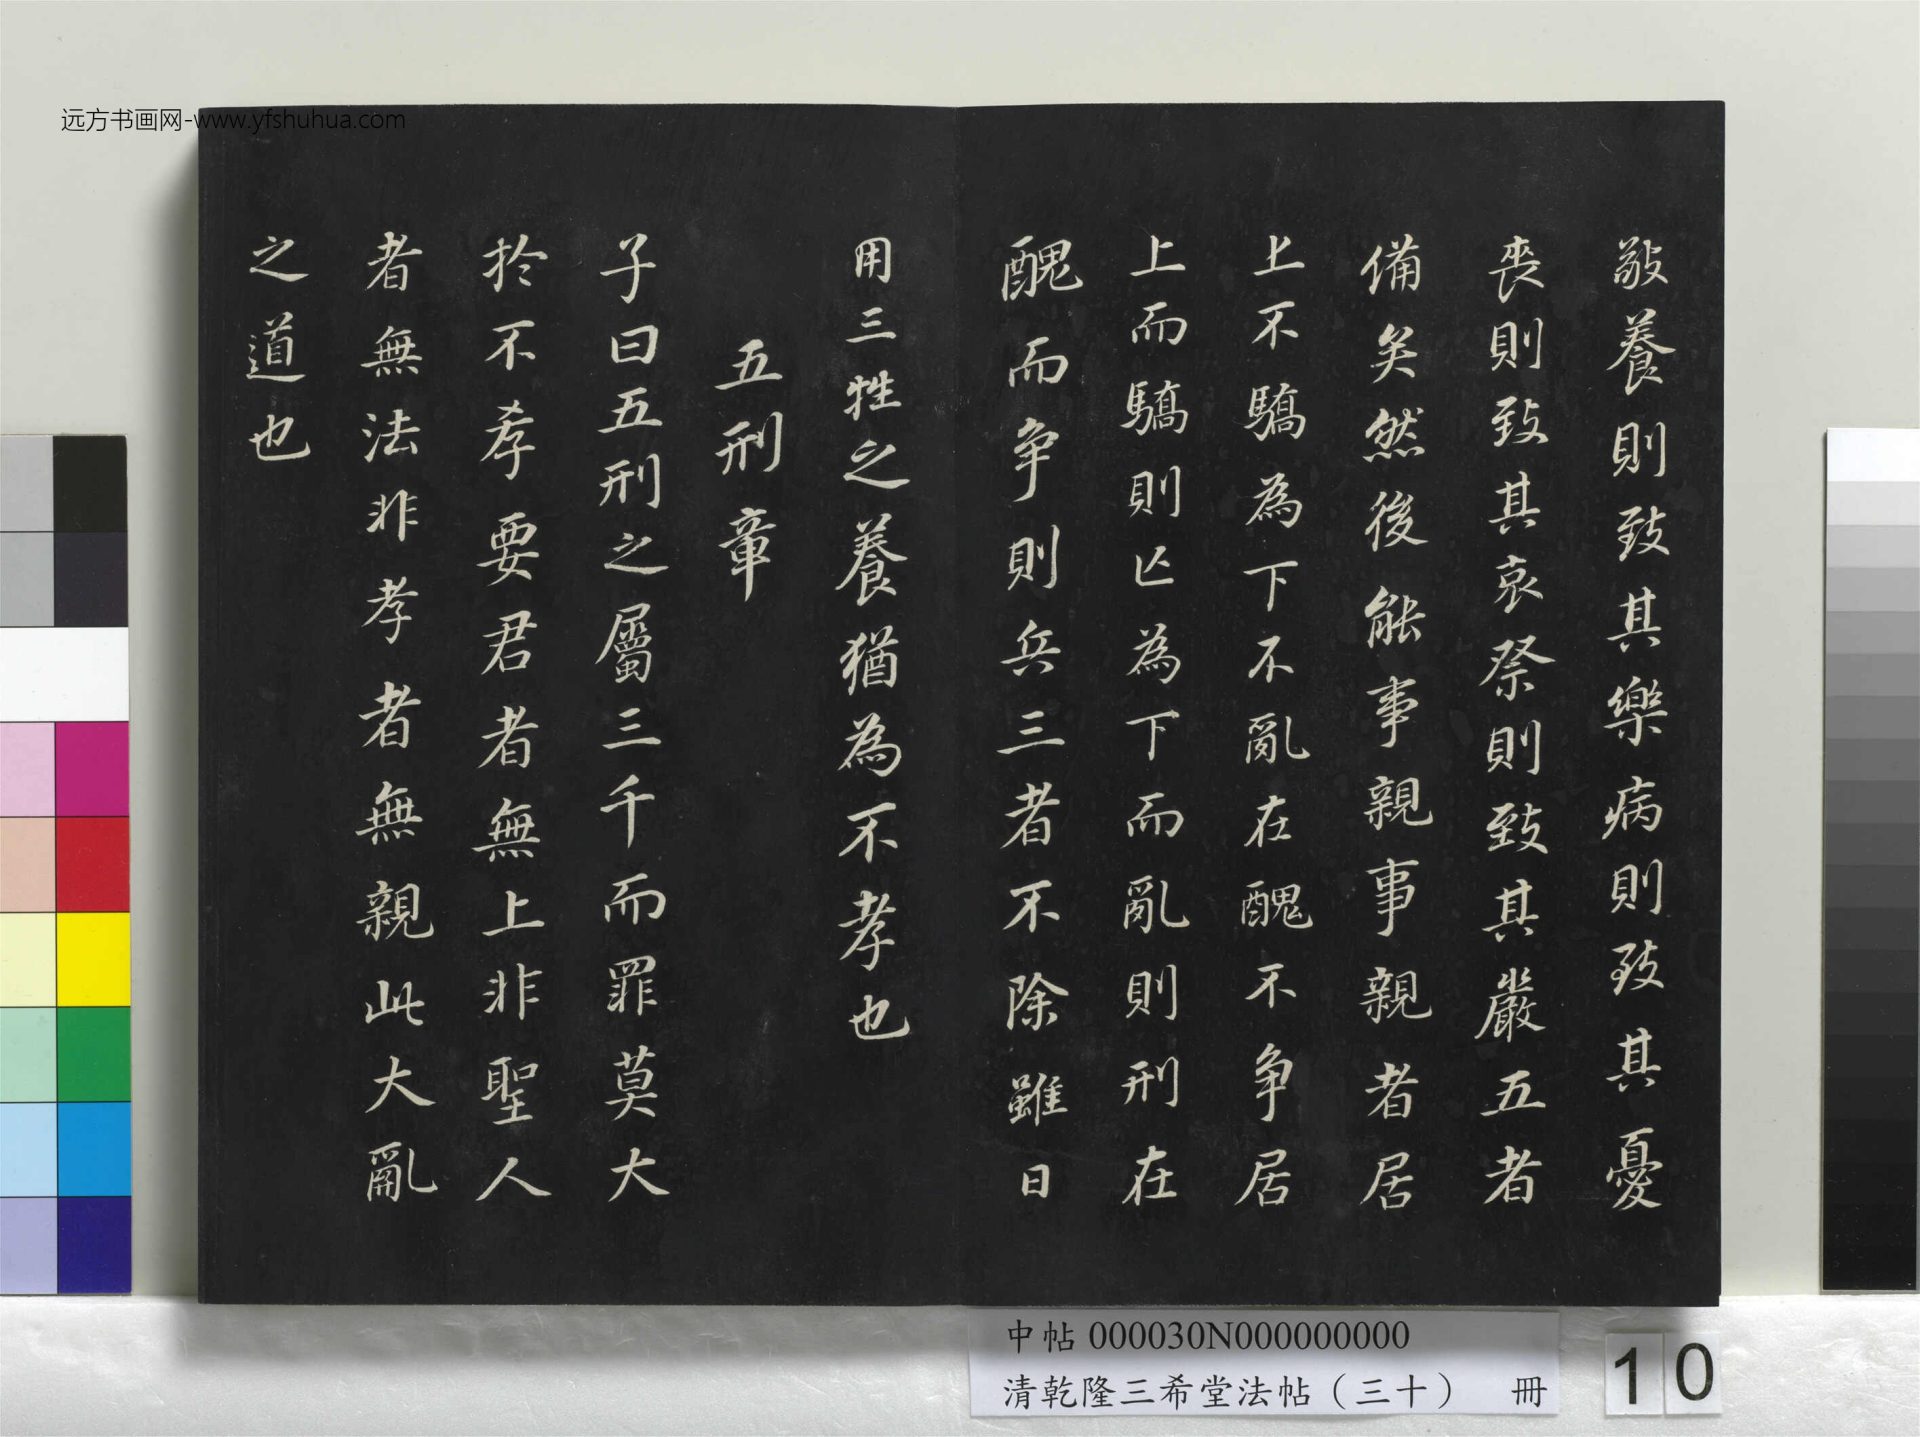 远方书画网-www.yfshuhua.com
敬養則致其樂病則致其憂
喪則致其哀祭則致其嚴五者
備矣然後能事親事親者居
上不驕為下不亂在醜不争居
上而驕則亡為下而亂則刑在
醜而争則兵三者不除雖日
用三牲之養猶為不孝也
五刑章
子曰五刑之屬三千而罪莫大
於不孝要君者無上非聖人
者無法非孝者無親此大亂
之道也
中帖 000030N000000000
清乾隆三希堂法帖（三十） 冊
10